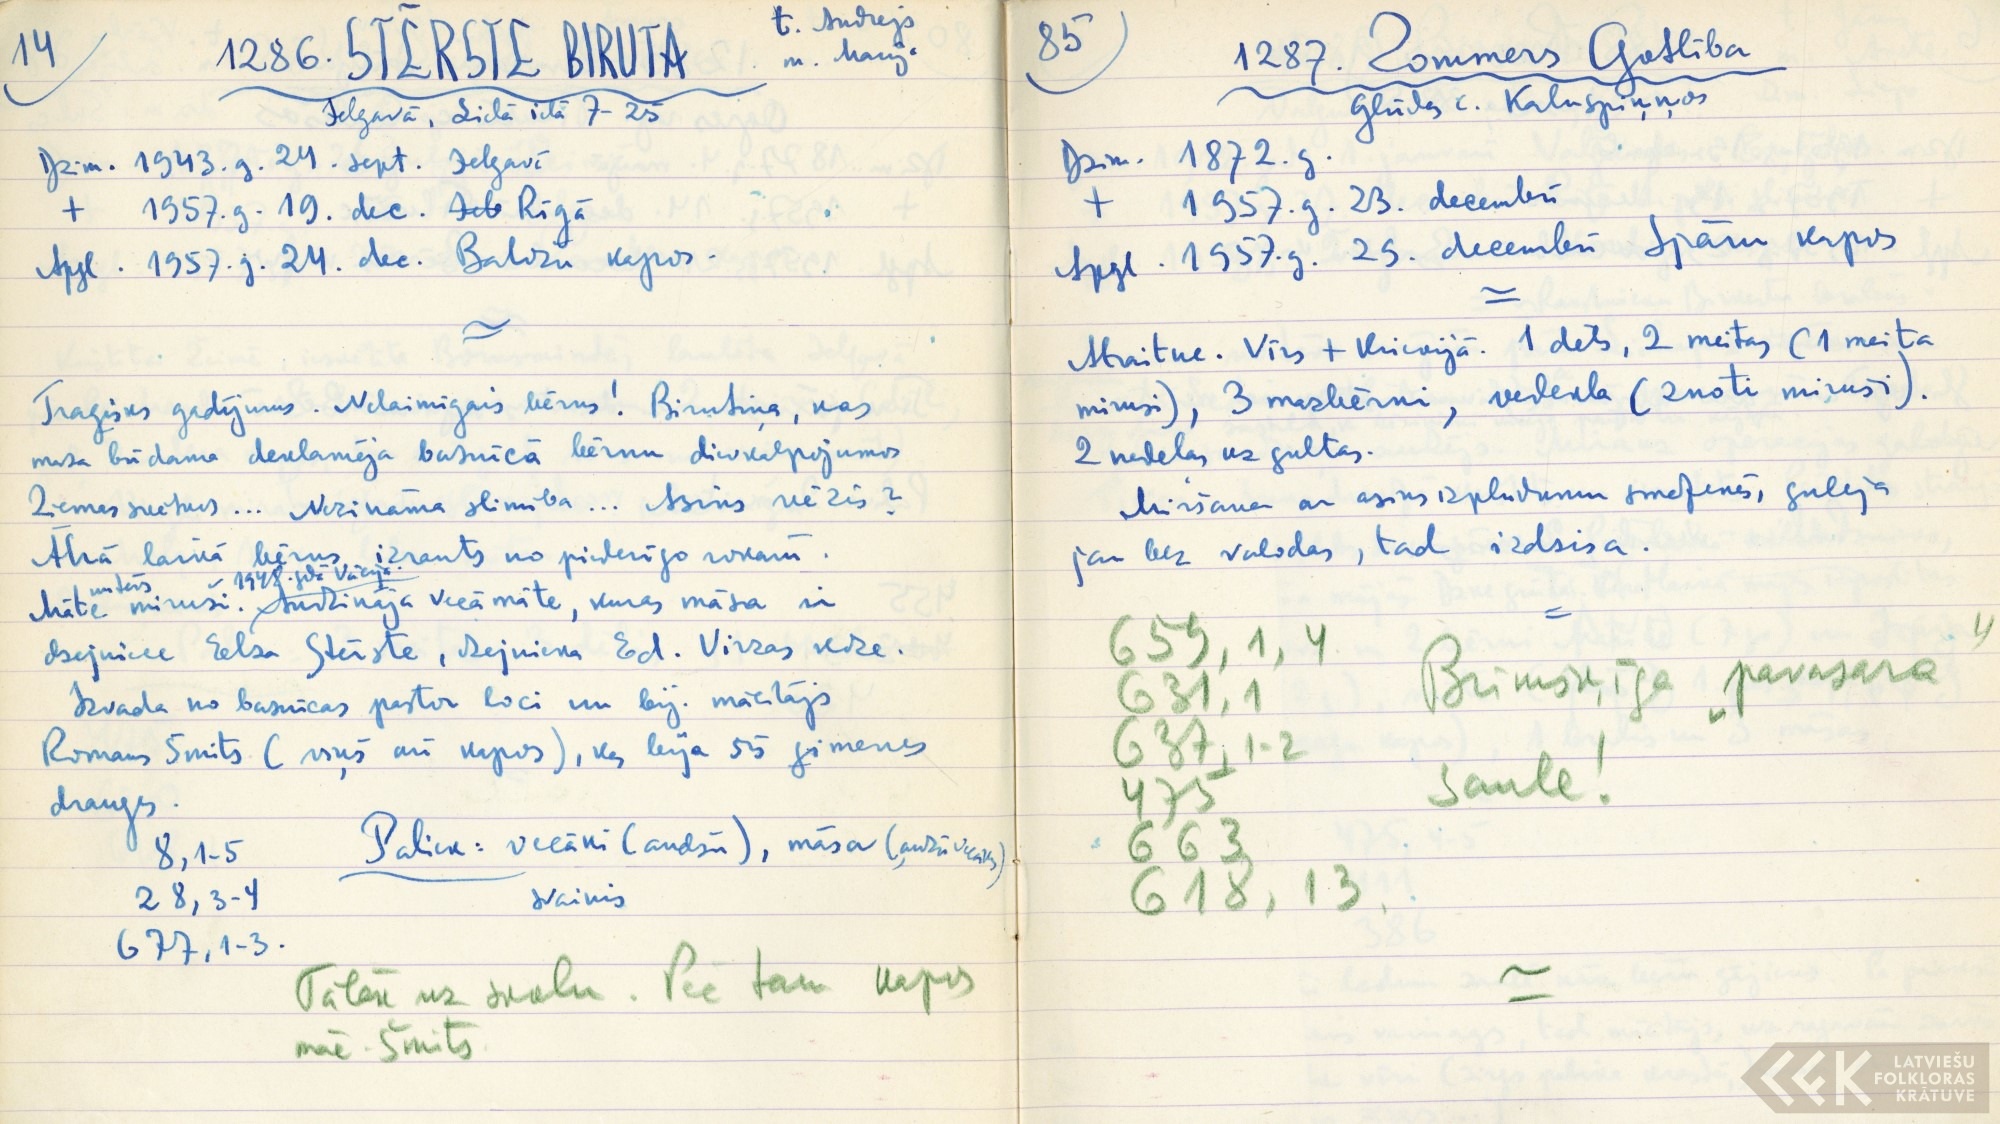 14
1286. STĒRSTE BIRUTA
t. Andrejs
m. Marija
Jelgavā, Lidā ielā 7-25
Dzim. 1943.g. 24. sept. Jelgavā
+ 1957.g. 19. dec. Rīgā
Apgl. 1957.g. 24. dec. Baložu kapos.
Traģisks gadījums. Nelaimīgais bērns! Birutiņa, kas
maza būdama deklamēja baznīcā bērnu dievkalpojumos
Ziemassvētkos... Nezināma slimība... Asins vēzis?
Ātrā laikā bērns izrauts no piederīgo rokām.
1948. gdā Vācijā
Māte mirusi. Audzināja vecāmāte, kuras māsa ir
dzejniece Elza Stērste, dzejnieka Ed. Virzas kdze.
Izvada no baznīcas pastor loci un bij. mācītājs
Romans Šmits (viņš arī kapos), kas bija šīs ģimenes
draugs.
8, 1-5
28, 3-4
677, 1-3.
Paliek: vecāki (audžu), māsa (audžuvecāks)
svainis
Tālāk uz skolu. Pēc tam kapos
māc. Šmits.
85
1287. Zommers Gotlība
Glūdas c. Kalnspiņņos
Dzim. 1872.g.
+ 1957.g. 23. decembrī
Apgl. 1957.g. 29. decembrī Spāru kapos
Atraitne. Vīrs + Krievijā. 1 dēls, 2 meitas (1 meita
mirusi), 3 mazbērni, vedekla (znoti miruši).
2 nedēlas uz gultas.
Miršana ar asins izplūdumu smadzenēs, guleja
jau bez valodas, tad izdzisa.
659, 1, 4
631, 1
637, 1-2
475
663
618, 13.
Brīnišķīga „pavasara"
saule!
LATVIEŠU
FOLKLORAS
KRĀTUVE